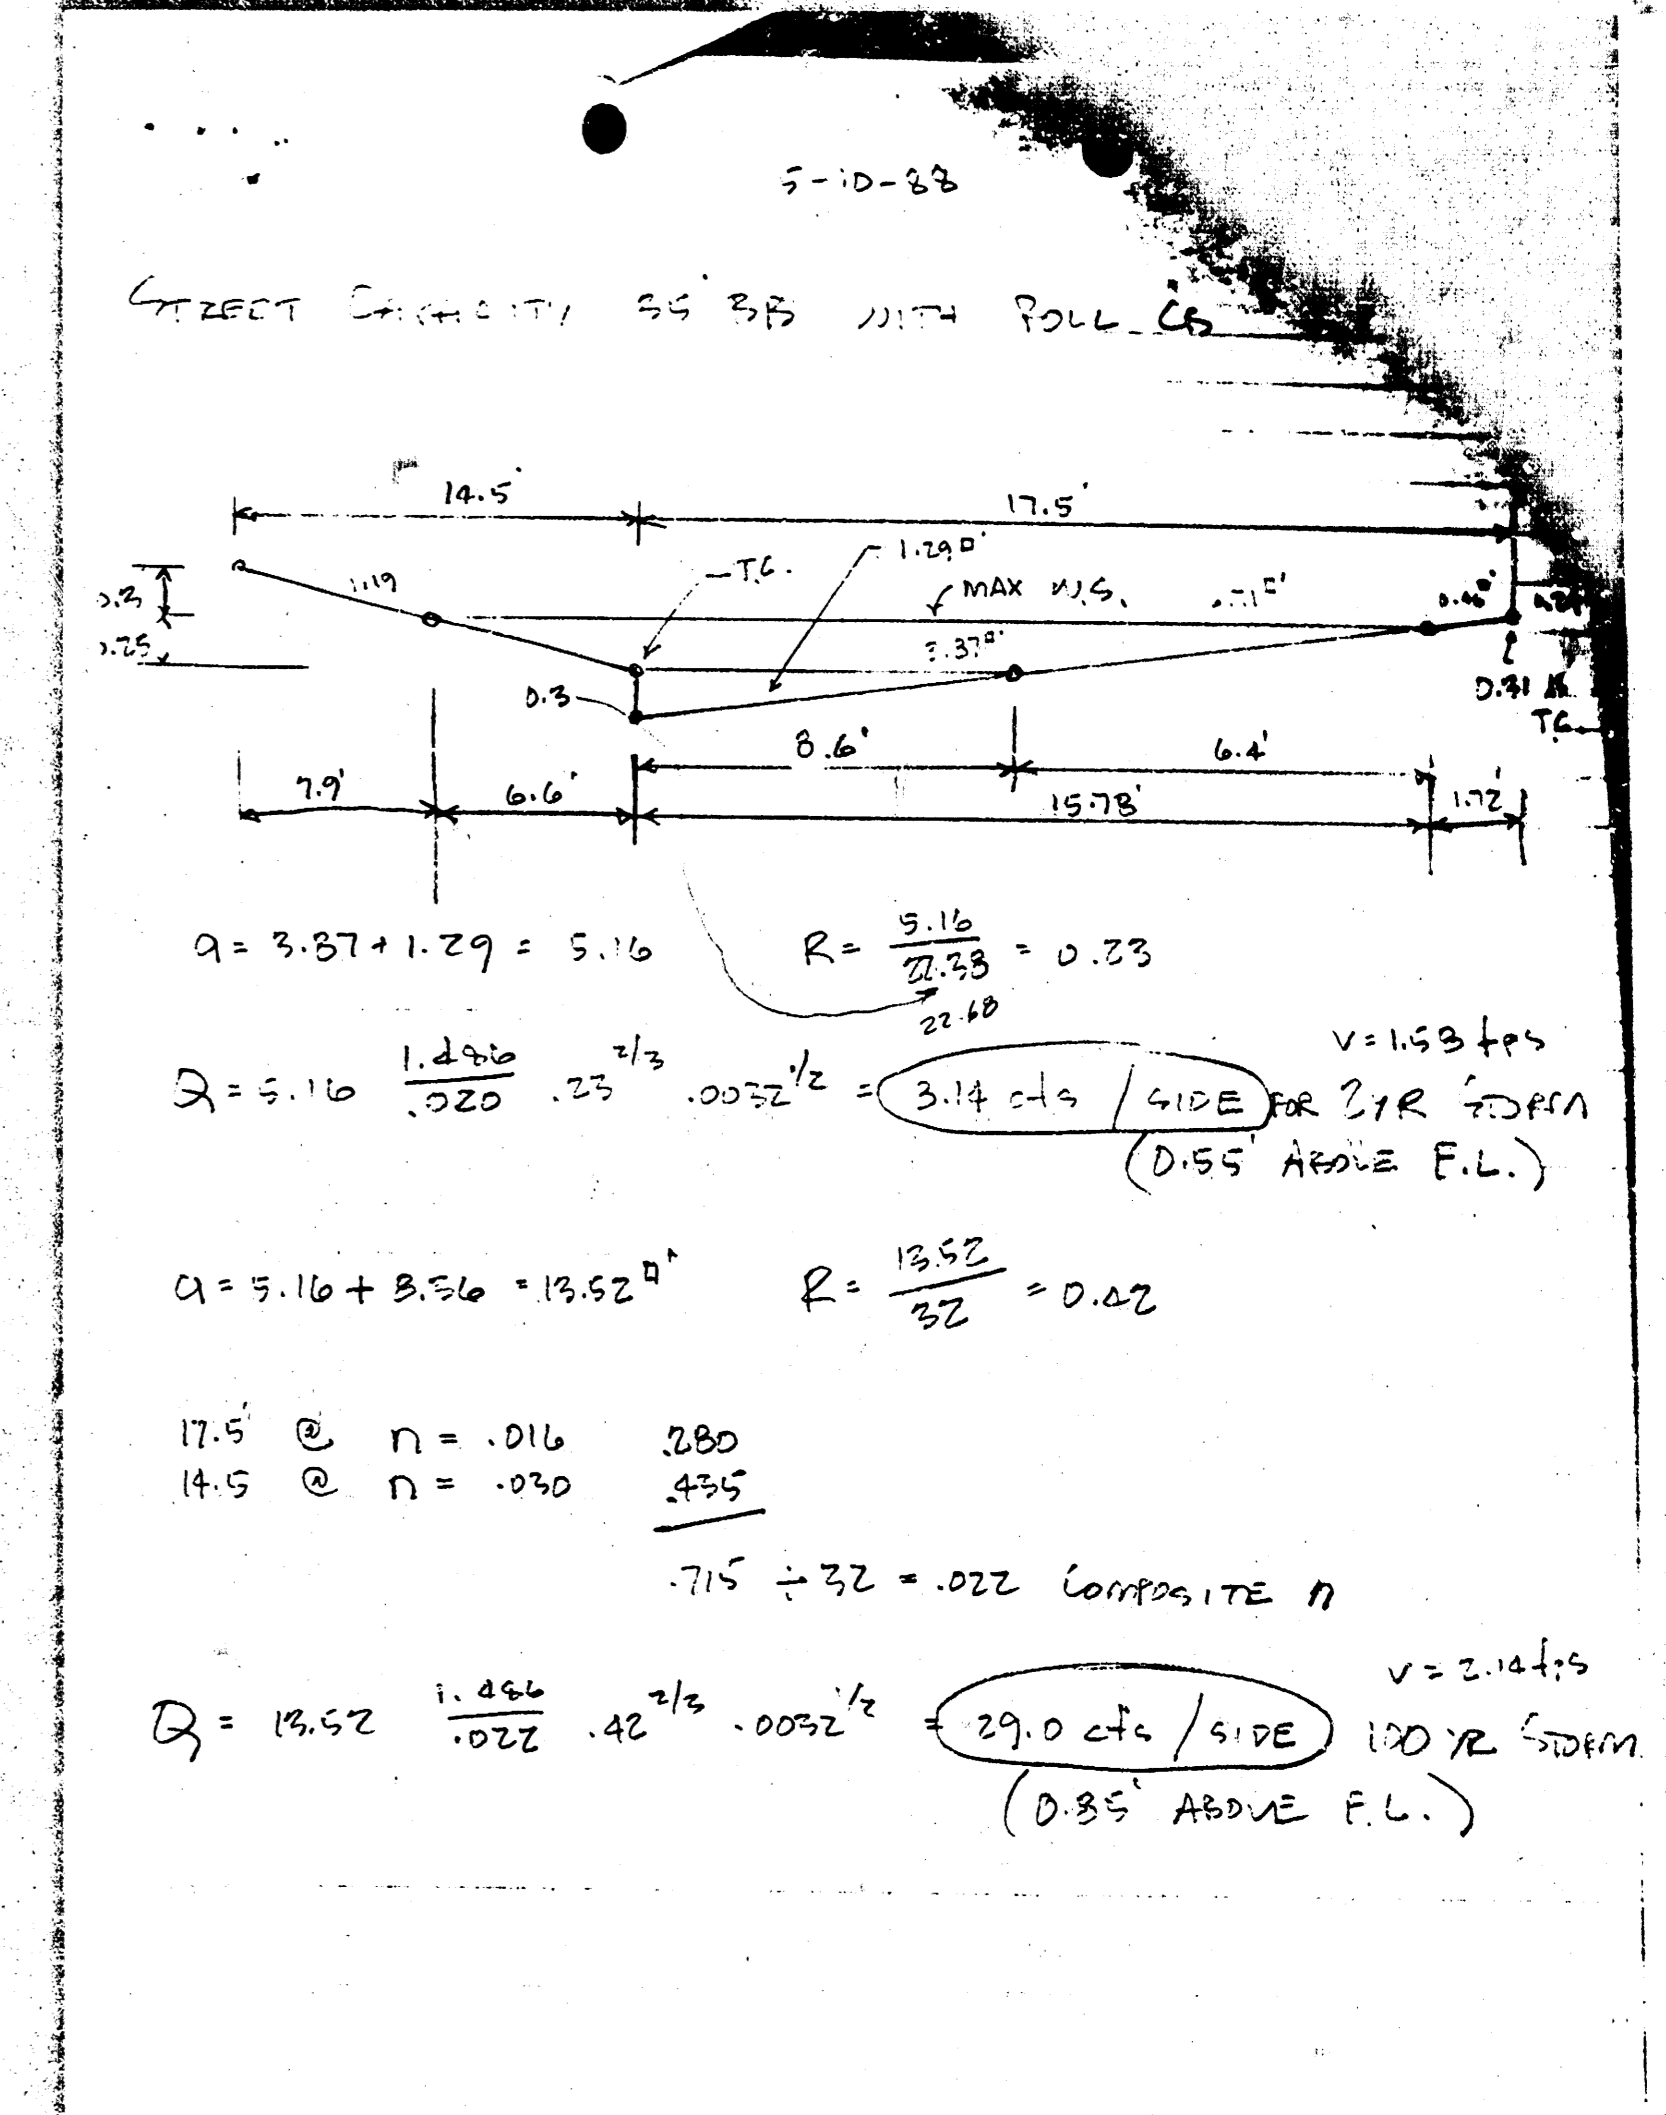 5-10-88
STREET CAPACITY 35' BB WITH ROLL CB
14.5' 17.5'
1.29□'
T.C.
MAX W.S.
1.19
0.3
.25
3.87□'
0.3
0.31
T.C.
8.6' 6.4'
7.9' 6.6' 15.78' 1.72'
a = 3.87 + 1.29 = 5.16 R = 5.16 / 22.38 = 0.23
22.68
V = 1.58 fps
Q = 5.16 1.486/.020 .23^2/3 .0032^1/2 = 8.14 cfs / SIDE FOR 2 YR STORM
(0.55' ABOVE F.L.)
a = 5.16 + 8.36 = 13.52□' R = 13.52 / 32 = 0.42
17.5' @ n = .016 .280
14.5 @ n = .030 .435
.715 ÷ 32 = .022 COMPOSITE n
V = 2.14 fps
Q = 13.52 1.486/.022 .42^2/3 .0032^1/2 = 29.0 cfs / SIDE 100 YR STORM
(0.85' ABOVE F.L.)